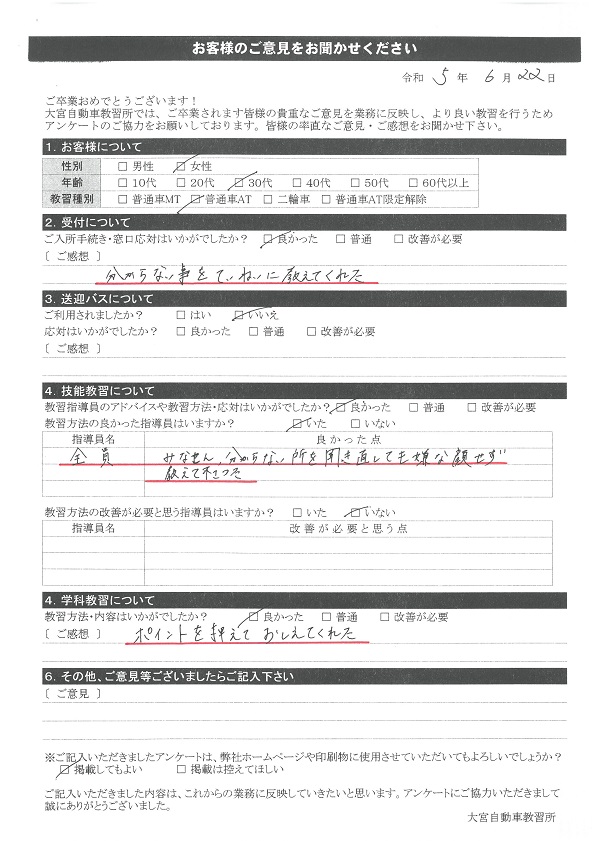 お客様のご意見をお聞かせください
令和 5 年 6 月 22 日
ご卒業おめでとうございます！
大宮自動車教習所では、ご卒業されます皆様の貴重なご意見を業務に反映し、より良い教習を行うため
アンケートのご協力をお願いしております。皆様の率直なご意見・ご感想をお聞かせ下さい。
1. お客様について
性別 □ 男性 ☑ 女性
年齢 □ 10代 □ 20代 ☑ 30代 □ 40代 □ 50代 □ 60代以上
教習種別 □ 普通車MT ☑ 普通車AT □ 二輪車 □ 普通車AT限定解除
2. 受付について
ご入所手続き・窓口応対はいかがでしたか？ ☑ 良かった □ 普通 □ 改善が必要
〔 ご感想 〕
分からない事をていねいに教えてくれた
3. 送迎バスについて
ご利用されましたか？ □ はい ☑ いいえ
応対はいかがでしたか？ □ 良かった □ 普通 □ 改善が必要
〔 ご感想 〕
4. 技能教習について
教習指導員のアドバイスや教習方法・応対はいかがでしたか？ ☑ 良かった □ 普通 □ 改善が必要
教習方法の良かった指導員はいますか？ ☑ いた □ いない
指導員名 良かった点
全員 みなさん、分からない所を聞き直しても嫌な顔せず
教えて下さった
教習方法の改善が必要と思う指導員はいますか？ □ いた ☑ いない
指導員名 改善が必要と思う点
4. 学科教習について
教習方法・内容はいかがでしたか？ ☑ 良かった □ 普通 □ 改善が必要
〔 ご感想 〕 ポイントを押えておしえてくれた
6. その他、ご意見等ございましたらご記入下さい
〔 ご意見 〕
※ご記入いただきましたアンケートは、弊社ホームページや印刷物に使用させていただいてもよろしいでしょうか？
☑ 掲載してもよい □ 掲載は控えてほしい
ご記入いただきました内容は、これからの業務に反映していきたいと思います。アンケートにご協力いただきまして
誠にありがとうございました。
大宮自動車教習所